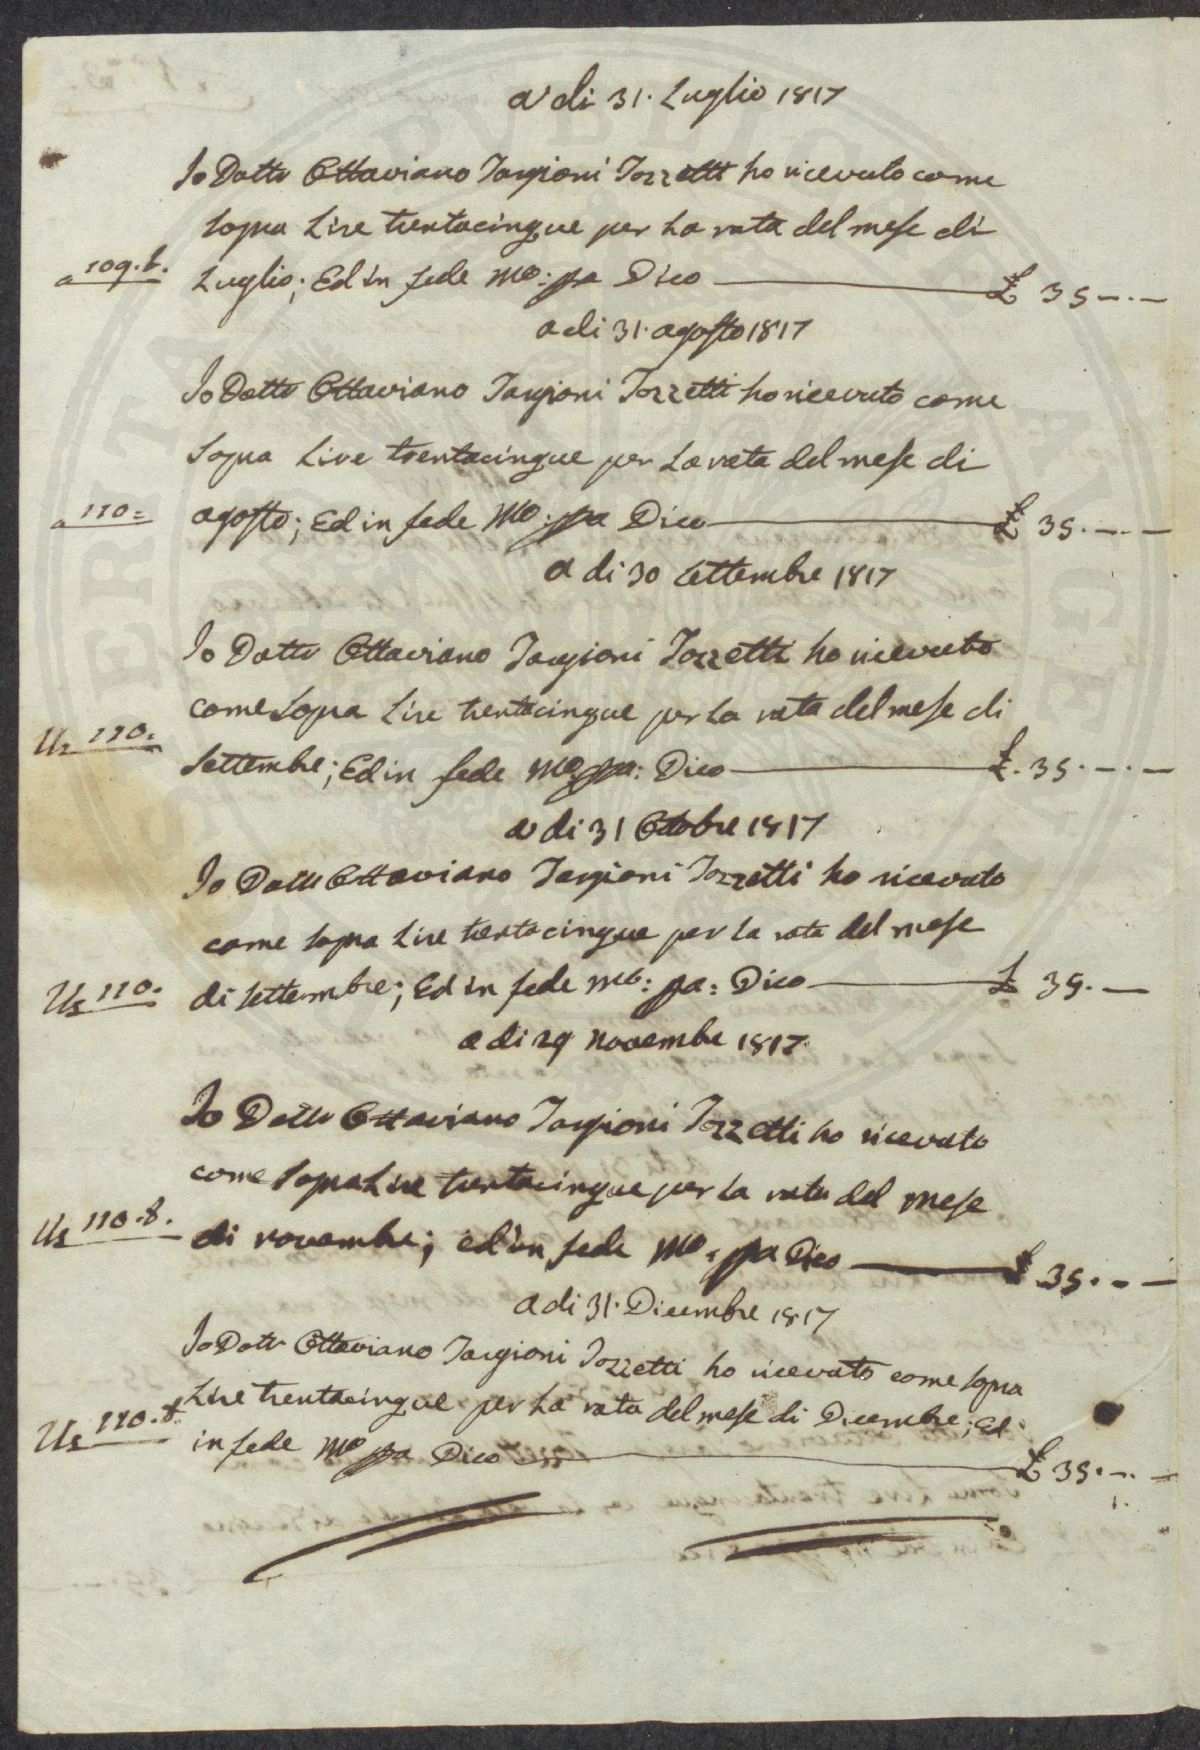 a' di 31. Luglio 1817
Io Dottr Ottaviano Targioni Tozzetti ho ricevuto come
sopra Lire trentacinque per La rata del mese di
a 109. t. Luglio; Ed in fede mo: ppa Dico £ 35 - . -
a di 31. agosto 1817
Io Dottr Ottaviano Targioni Tozzetti ho ricevuto come
sopra Lire trentacinque per La rata del mese di
a 110 = agosto; Ed in fede Mo: ppa Dico £ 35. - . -
a di 30 Settembre 1817
Io Dottr Ottaviano Targioni Tozzetti ho ricevuto
come sopra Lire trentacinque per La rata del mese di
Us 110. Settembre; Ed in fede Mo: ppa: Dico £. 35. - . -
a' di 31 Ottobre 1817
Io Dottr Ottaviano Targioni Tozzetti ho ricevuto
come sopra Lire trentacinque per La rata del mese
Us 110. di settembre; Ed in fede mo: ppa: Dico £ 35. -
a di 29 Novembre 1817.
Io Dottr Ottaviano Targioni Tozzetti ho ricevuto
come sopra Lire trentacinque per La rata del mese
Us 110. t. di novembre; ed in fede Mo. ppa Dico £ 35. - -
a di 31. Dicembre 1817
Io Dottr Ottaviano Targioni Tozzetti ho ricevuto come sopra
Lire trentacinque per La rata del mese di Dicembre; Ed
Us 110. t. in fede Mo ppa Dico £ 35. - . -